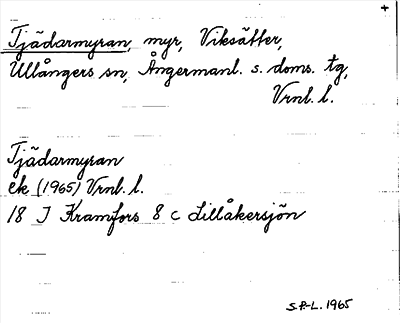 Tjädarmyran, myr, Viksätter,
Ullångers sn, Ångermanl. s. doms. tg,
Vrnl. l.
Tjädarmyran
ek (1965) Vrnl. l.
18 J Kramfors 8 c Lillåkersjön
S.P.-L. 1965